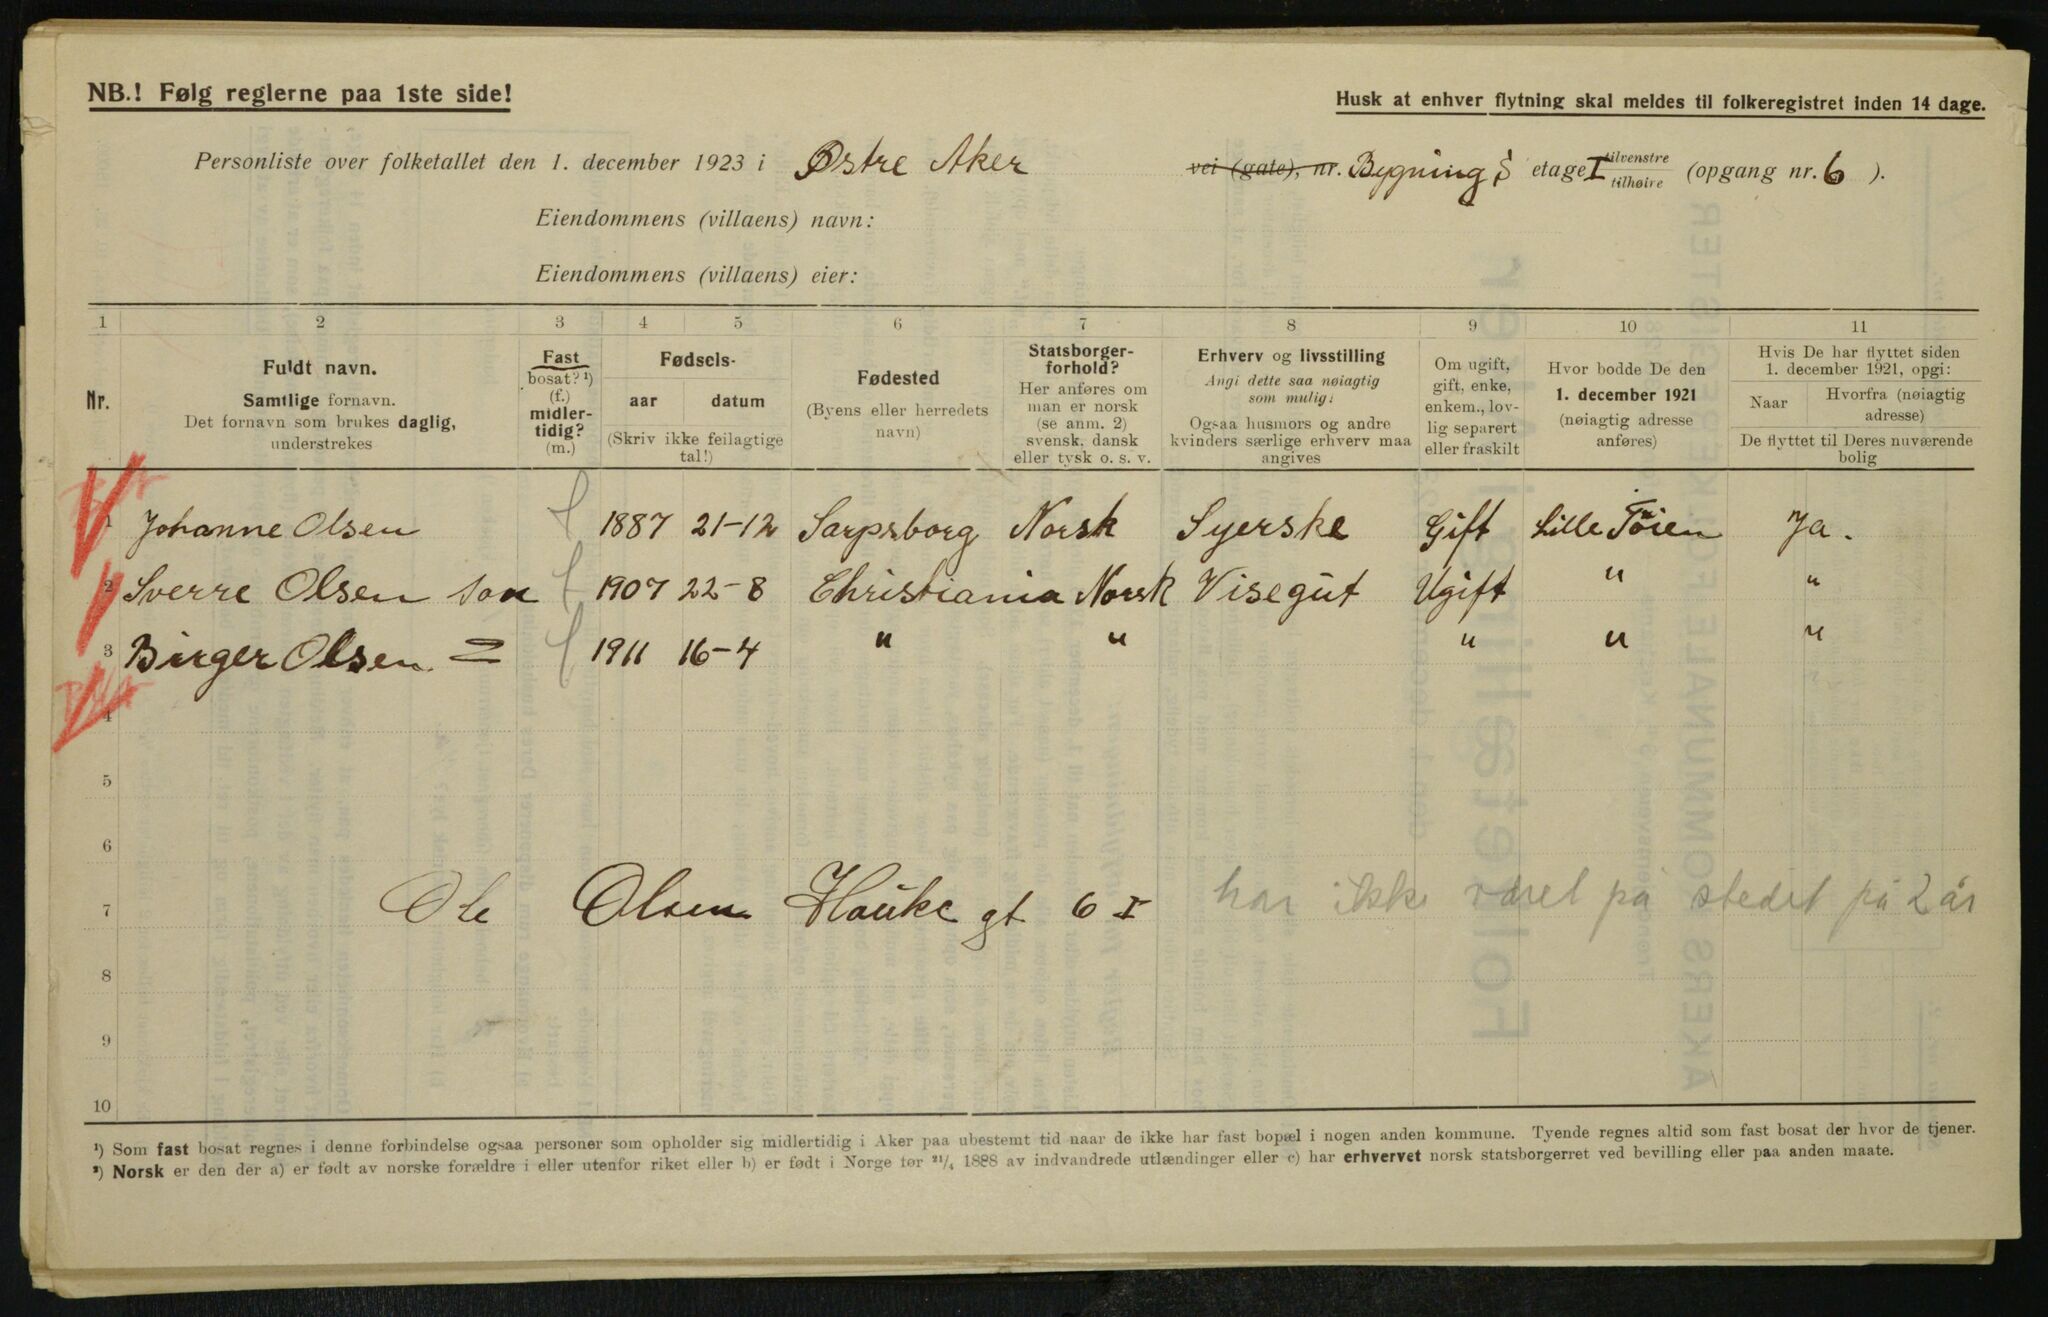 NB.! Følg reglerne paa 1ste side!
Husk at enhver flytning skal meldes til folkeregistret inden 14 dage.
Personliste over folketallet den 1. december 1923 i Østre Aker vei (gate), nr. Bygning etage I tilvenstre tilhøire (opgang nr. 6 ).
Eiendommens (villaens) navn:
Eiendommens (villaens) eier:
1 2 3 4 5 6 7 8 9 10 11
Nr.
Fuldt navn.
Samtlige fornavn.
Det fornavn som brukes daglig,
understrekes
Fast
bosat? ¹)
(f.)
midler-
tidig?
(m.)
Fødsels-
aar datum
(Skriv ikke feilagtige
tal!)
Fødested
(Byens eller herredets
navn)
Statsborger-
forhold?
Her anføres om
man er norsk
(se anm. 2)
svensk, dansk
eller tysk o. s. v.
Erhverv og livsstilling
Angi dette saa nøiagtig
som mulig:
Ogsaa husmors og andre
kvinders særlige erhverv maa
angives
Om ugift,
gift, enke,
enkem., lov-
lig separert
eller fraskilt
Hvor bodde De den
1. december 1921
(nøiagtig adresse
anføres)
Hvis De har flyttet siden
1. december 1921, opgi:
Naar Hvorfra (nøiagtig
adresse)
De flyttet til Deres nuværende
bolig
1 Johanne Olsen f 1887 21-12 Sarpsborg Norsk Syerske Gift Lille Töien Ja.
2 Sverre Olsen søn f 1907 22-8 Christiania Norsk Visegut Ugift " "
3 Birger Olsen = f 1911 16-4 " " " " "
4
5
6
7 Ole Olsen Hauke gt 6 I har ikke været på stedet på 2 år
8
9
10
¹) Som fast bosat regnes i denne forbindelse ogsaa personer som opholder sig midlertidig i Aker paa ubestemt tid naar de ikke har fast bopæl i nogen anden kommune. Tyende regnes altid som fast bosat der hvor de tjener.
²) Norsk er den der a) er født av norske forældre i eller utenfor riket eller b) er født i Norge før 21/4 1888 av indvandrede utlændinger eller c) har erhvervet norsk statsborgerret ved bevilling eller paa anden maate.